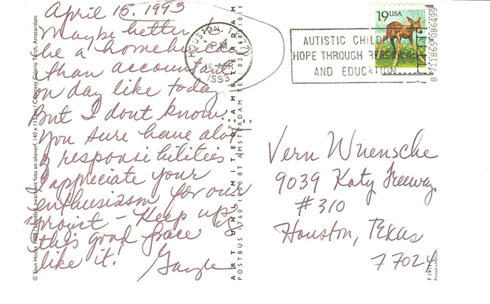 April 15, 1993
Maybe better
be a homebuilder
than accountant
on day like today
But I dont know.
You sure have alot
of responsibilities
I appreciate your
enthusiasm for our
project - Keep up
this good pace I
like it!
Gayle
ART UNLIMITED AMSTERDAM
HOUSTON
PM
1993
AUTISTIC CHILDREN
HOPE THROUGH RESEARCH
AND EDUCATION
19 USA
Vern Wuensche
9039 Katy Freeway
#310
Houston, Texas
77024